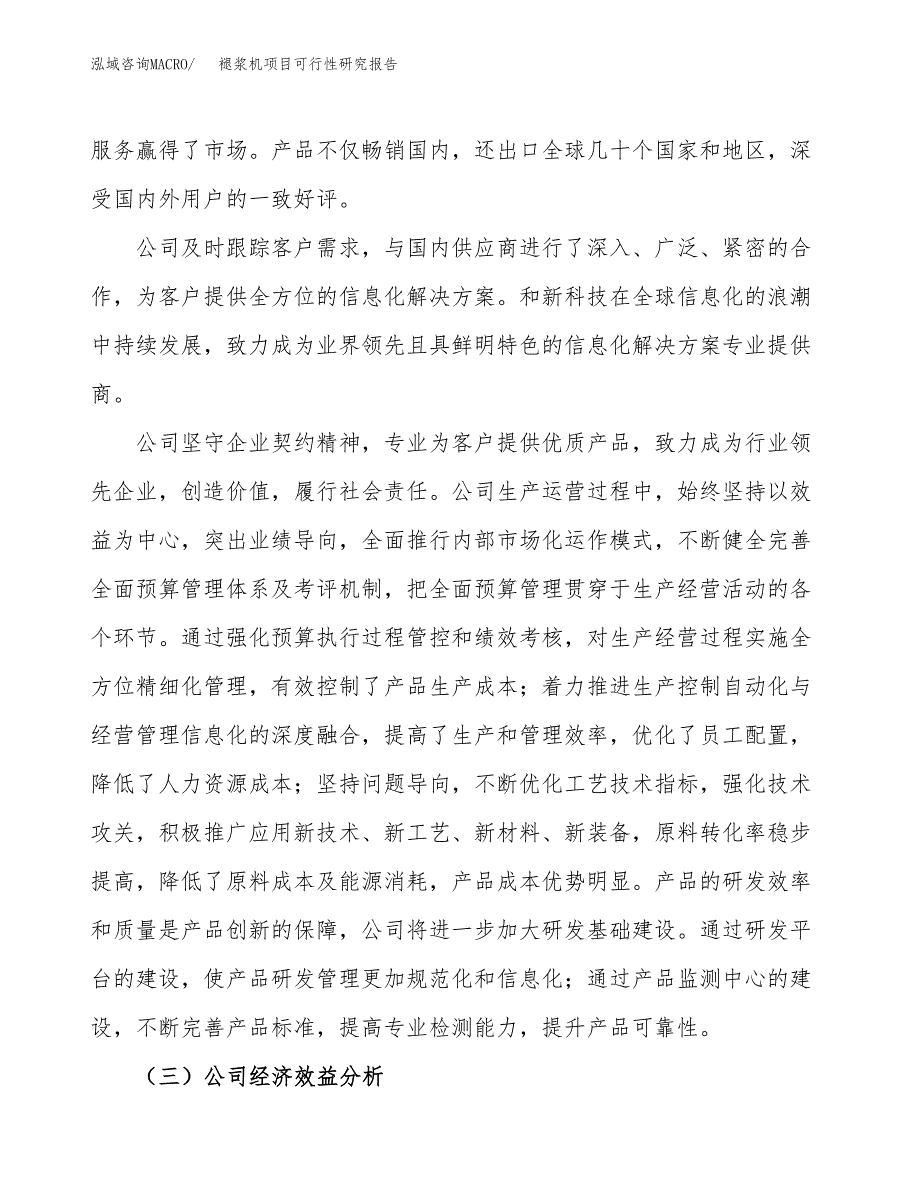 泓域咨询MACRO/ 褪浆机项目可行性研究报告
服务赢得了市场。产品不仅畅销国内，还出口全球几十个国家和地区，深
受国内外用户的一致好评。
公司及时跟踪客户需求，与国内供应商进行了深入、广泛、紧密的合
作，为客户提供全方位的信息化解决方案。和新科技在全球信息化的浪潮
中持续发展，致力成为业界领先且具鲜明特色的信息化解决方案专业提供
商。
公司坚守企业契约精神，专业为客户提供优质产品，致力成为行业领
先企业，创造价值，履行社会责任。公司生产运营过程中，始终坚持以效
益为中心，突出业绩导向，全面推行内部市场化运作模式，不断健全完善
全面预算管理体系及考评机制，把全面预算管理贯穿于生产经营活动的各
个环节。通过强化预算执行过程管控和绩效考核，对生产经营过程实施全
方位精细化管理，有效控制了产品生产成本；着力推进生产控制自动化与
经营管理信息化的深度融合，提高了生产和管理效率，优化了员工配置，
降低了人力资源成本；坚持问题导向，不断优化工艺技术指标，强化技术
攻关，积极推广应用新技术、新工艺、新材料、新装备，原料转化率稳步
提高，降低了原料成本及能源消耗，产品成本优势明显。产品的研发效率
和质量是产品创新的保障，公司将进一步加大研发基础建设。通过研发平
台的建设，使产品研发管理更加规范化和信息化；通过产品监测中心的建
设，不断完善产品标准，提高专业检测能力，提升产品可靠性。
（三）公司经济效益分析